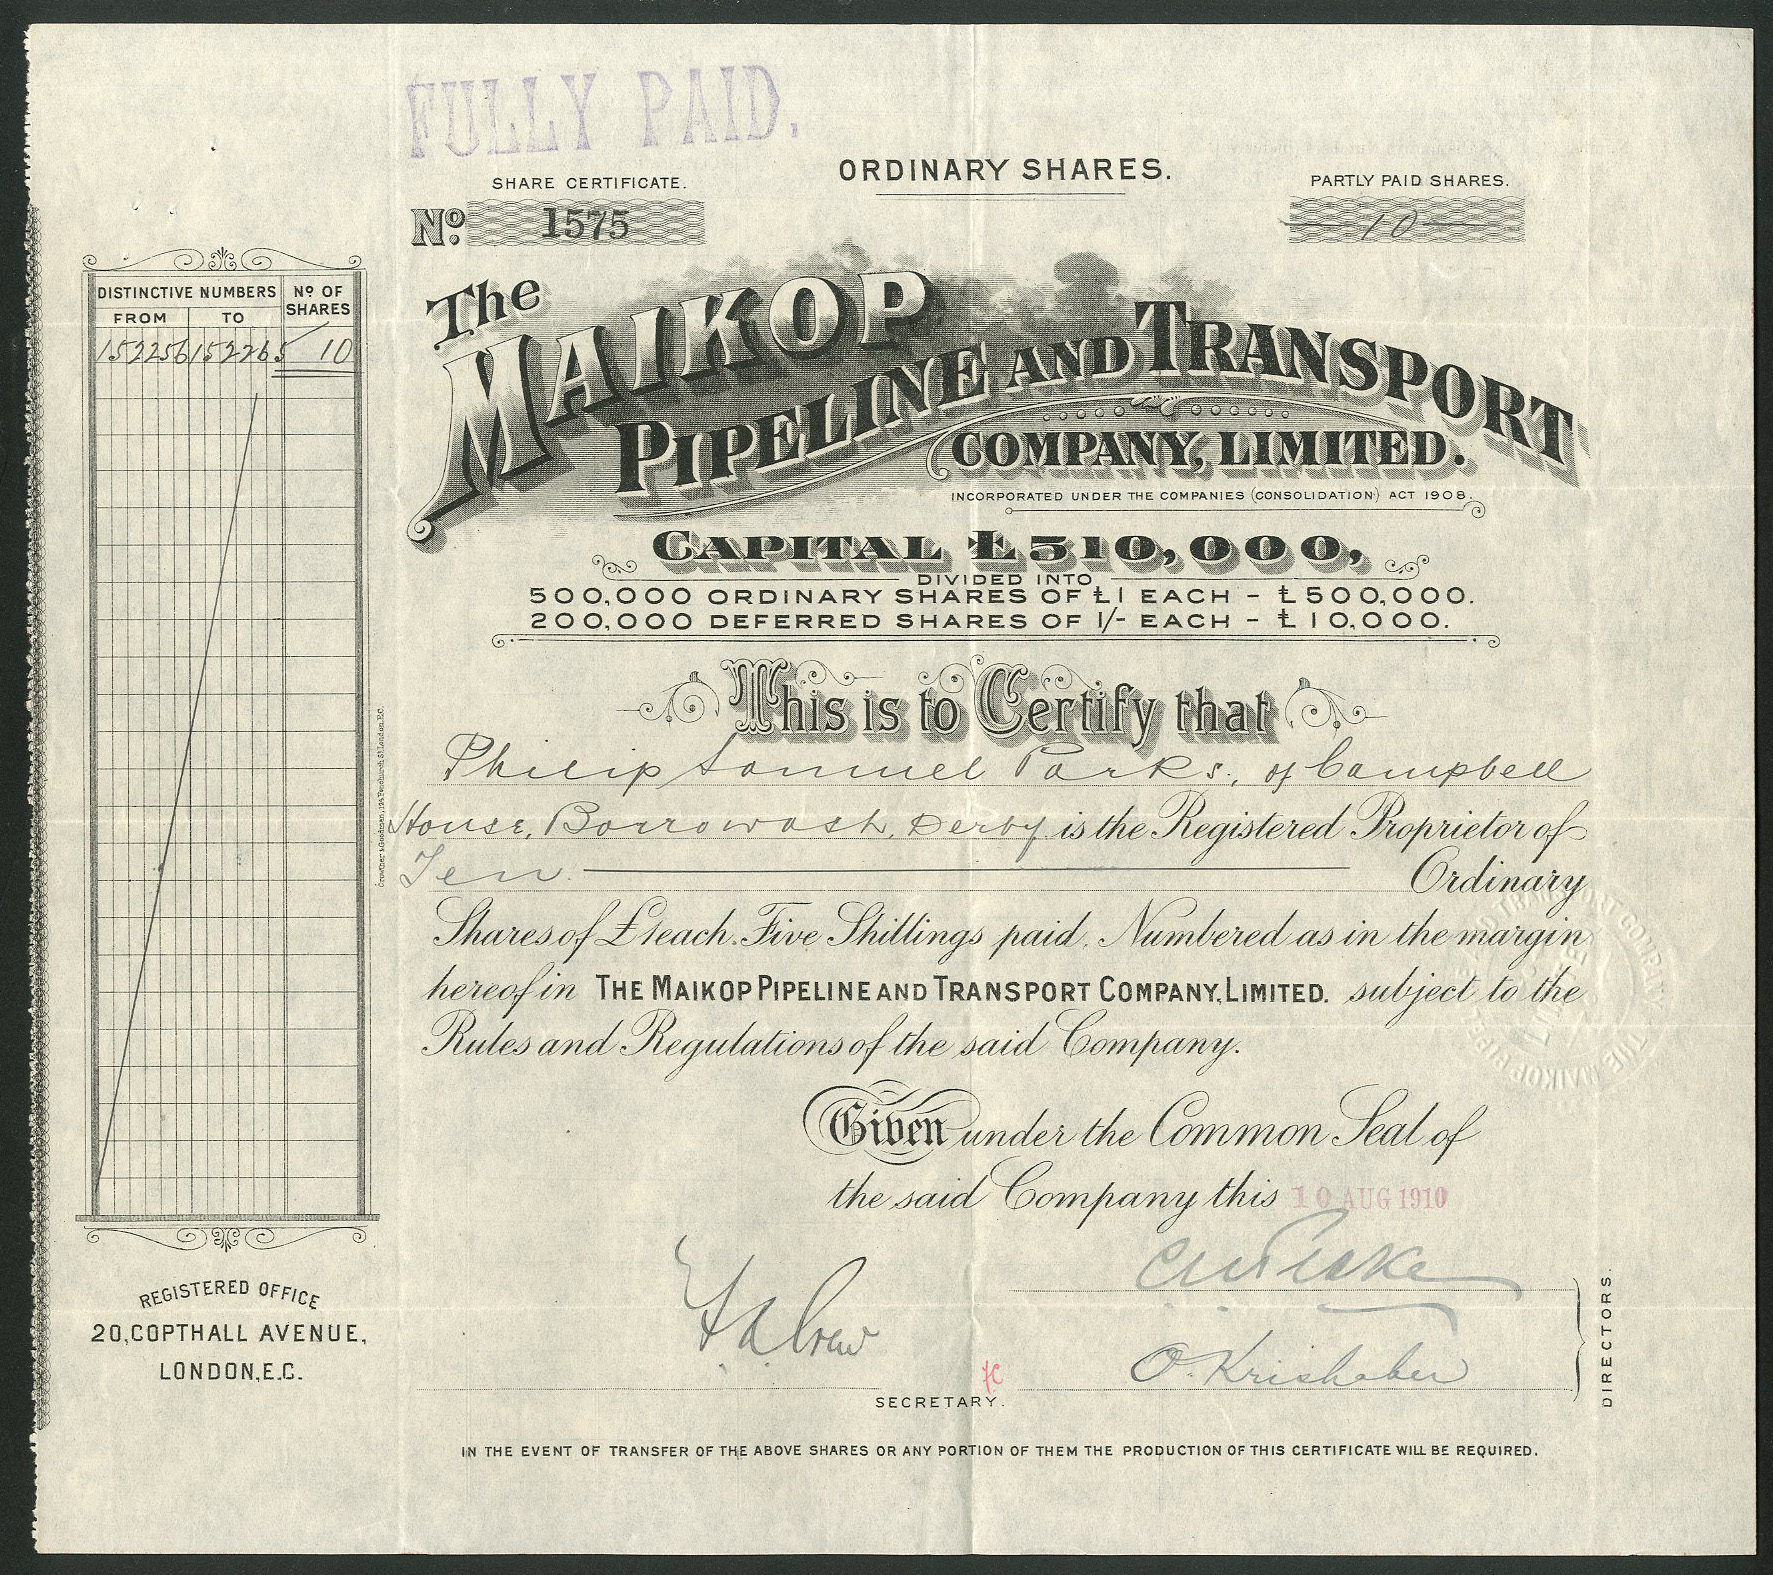 FULLY PAID.
ORDINARY SHARES.
SHARE CERTIFICATE.
PARTLY PAID SHARES.
No. 1575
10
The
MAIKOP
PIPELINE AND TRANSPORT
COMPANY, LIMITED.
INCORPORATED UNDER THE COMPANIES (CONSOLIDATION) ACT 1908.
CAPITAL £510,000,
DIVIDED INTO
500,000 ORDINARY SHARES OF £1 EACH - £500,000.
200,000 DEFERRED SHARES OF 1/- EACH - £10,000.
DISTINCTIVE NUMBERS
No OF SHARES
FROM TO
152256 152265 10
This is to Certify that
Philip Samuel Parks, of Campbell
House, Borrowash, Derby is the Registered Proprietor of
Ten Ordinary
Shares of £1 each. Five Shillings paid. Numbered as in the margin
hereof in THE MAIKOP PIPELINE AND TRANSPORT COMPANY, LIMITED. subject to the
Rules and Regulations of the said Company.
Given under the Common Seal of
the said Company this 10 AUG 1910
O. Krishaber
DIRECTORS.
SECRETARY.
REGISTERED OFFICE
20, COPTHALL AVENUE,
LONDON, E.C.
IN THE EVENT OF TRANSFER OF THE ABOVE SHARES OR ANY PORTION OF THEM THE PRODUCTION OF THIS CERTIFICATE WILL BE REQUIRED.